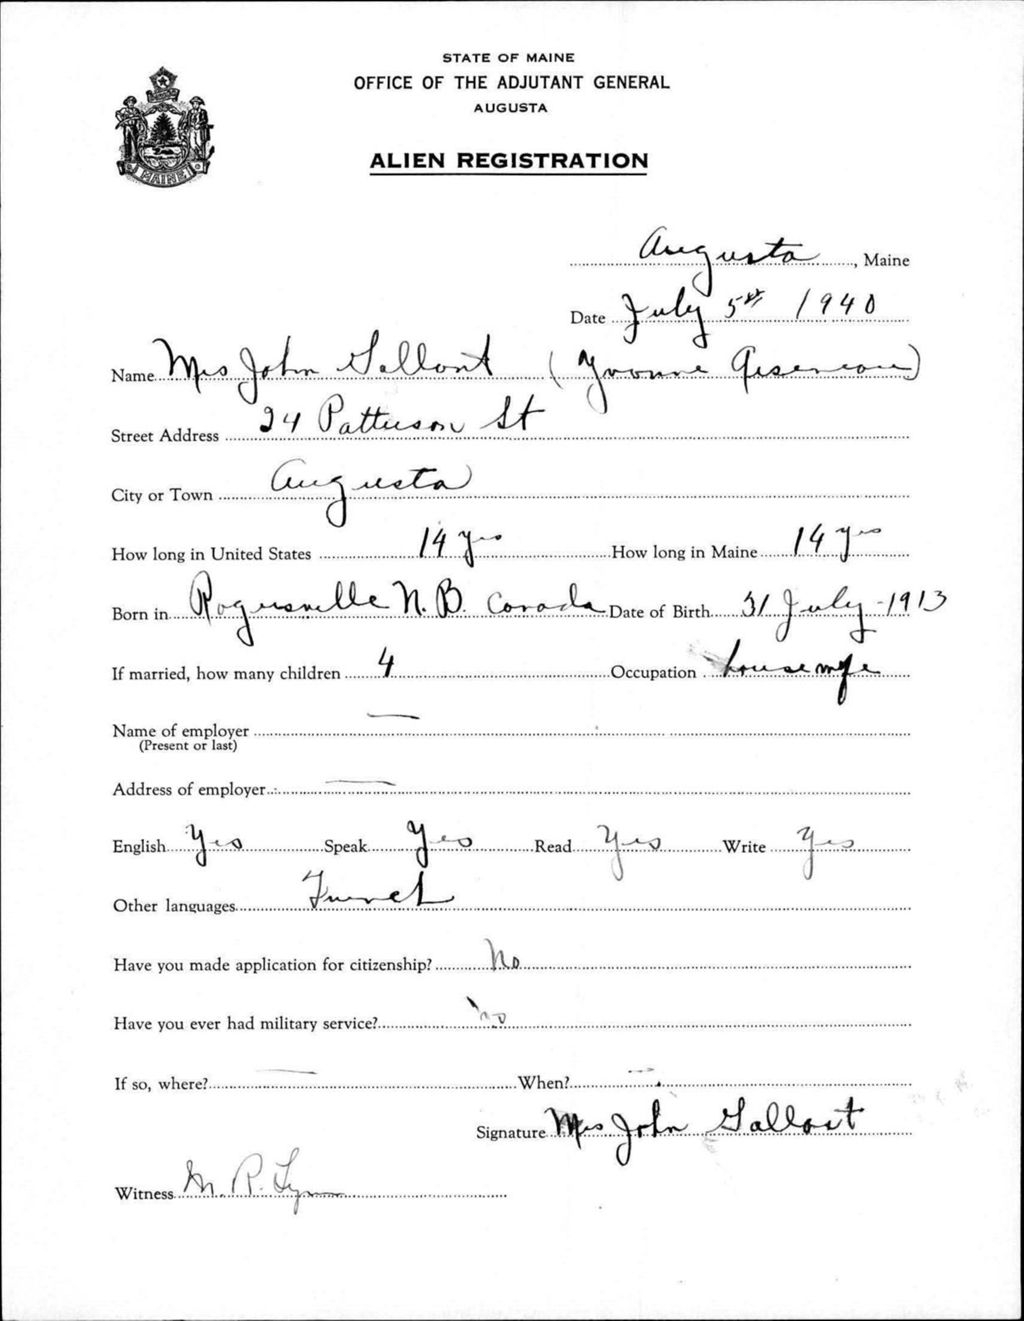 STATE OF MAINE
OFFICE OF THE ADJUTANT GENERAL
AUGUSTA
MAINE
ALIEN REGISTRATION
Augusta, Maine
Date July 5th 1940
Name Mrs John Gallant (Yvonne Arseneau)
Street Address 24 Patterson St
City or Town Augusta
How long in United States 14 yrs How long in Maine 14 yrs
Born in Rogersville N.B. Canada Date of Birth 31 July - 1913
If married, how many children 4 Occupation housewife
Name of employer —
(Present or last)
Address of employer —
English Yes Speak Yes Read Yes Write Yes
Other languages French
Have you made application for citizenship? No
Have you ever had military service? No
If so, where? — When? —
Signature Mrs John Gallant
Witness M. R. Lynn